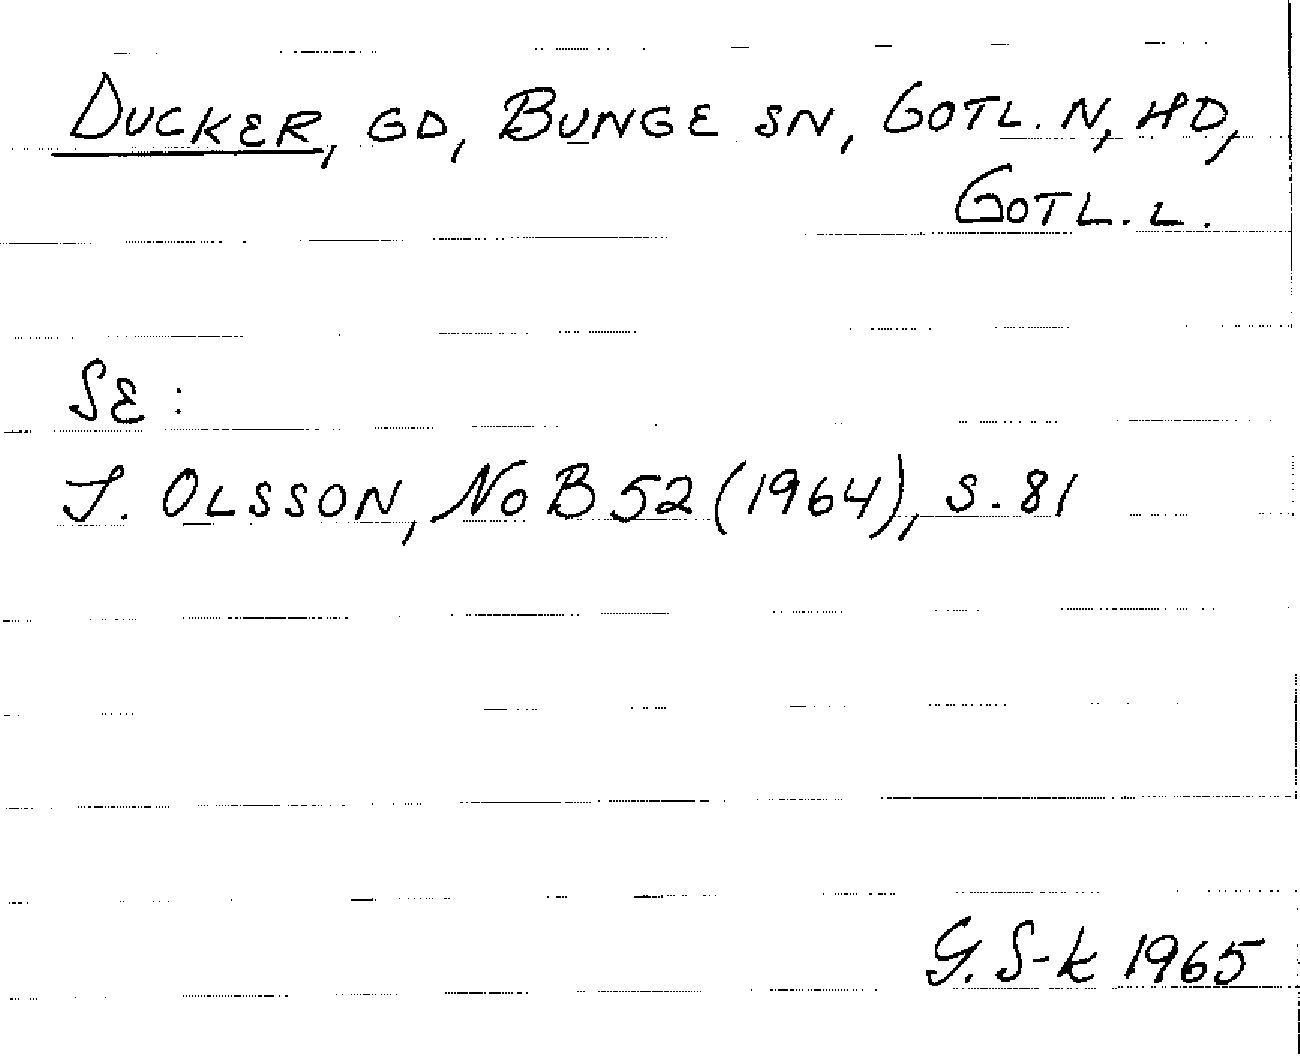 DUCKER, GD, BUNGE SN, GOTL. N, HD,
GOTL. L.
SE:
I. OLSSON, NoB 52 (1964), S. 81
G. S-k 1965